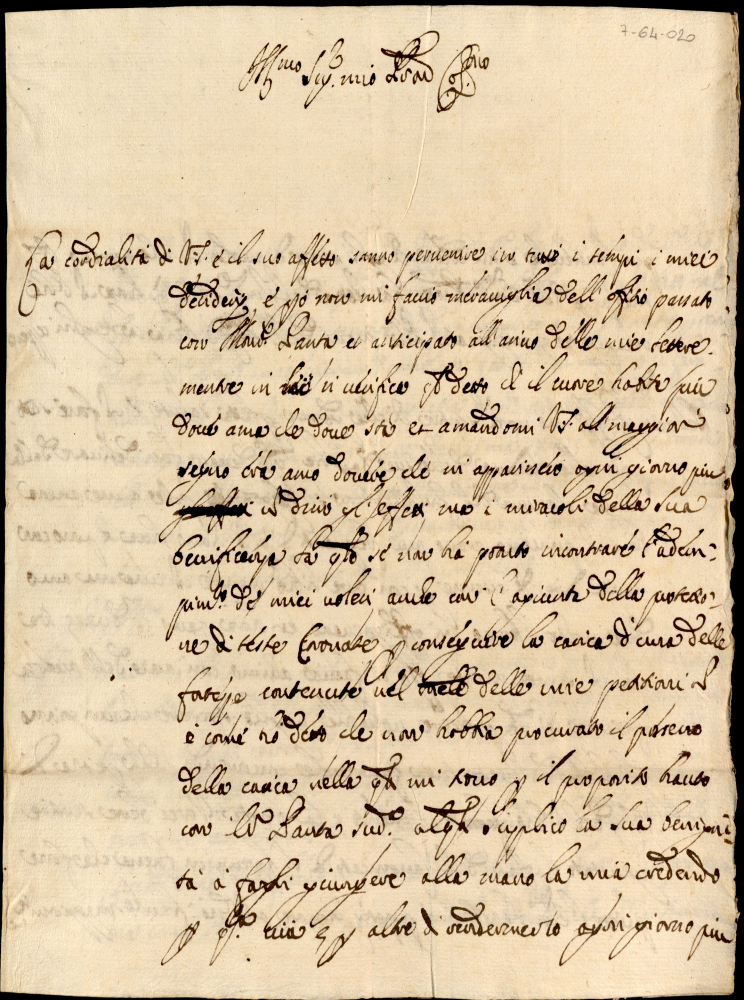 7-64-020
Ill.mo Sig.r mio P.ron Col.mo
La cordialità di V.S. e il suo affetto sanno pervenire in tutti i tempi i miei
desiderij, e p.ciò non mi faccio meraviglia dell'offitio passato
con Mons.r Santa et anticipato all'arivo delle mie lettere.
mentre in lui si verifica q.l detto ch il cuore habita più
dove ama che dove sta et amandomi V.S. all maggior
segno che amo dovere che mi apparischio ogni giorno più
n.n dirò gl'effetti ma i miracoli della sua
benificenza fa q.to se non ha potuto incontrare l'adem-
pim.to de miei voleri anche con l'agiunta della protetio-
ne di teste Coronate p conseguire la carica d cura delle
fortezze contenute nel delle mie petitioni
e come hò detto che non habbia procurato il possesso
della carica nella q.le mi trovo p il proposito hauto
con Santa sud.o supplico la sua benigni-
tà à fargli giungere alla mano la mia credendo
p q.ta via e p altre d rendermento ogni giorno più